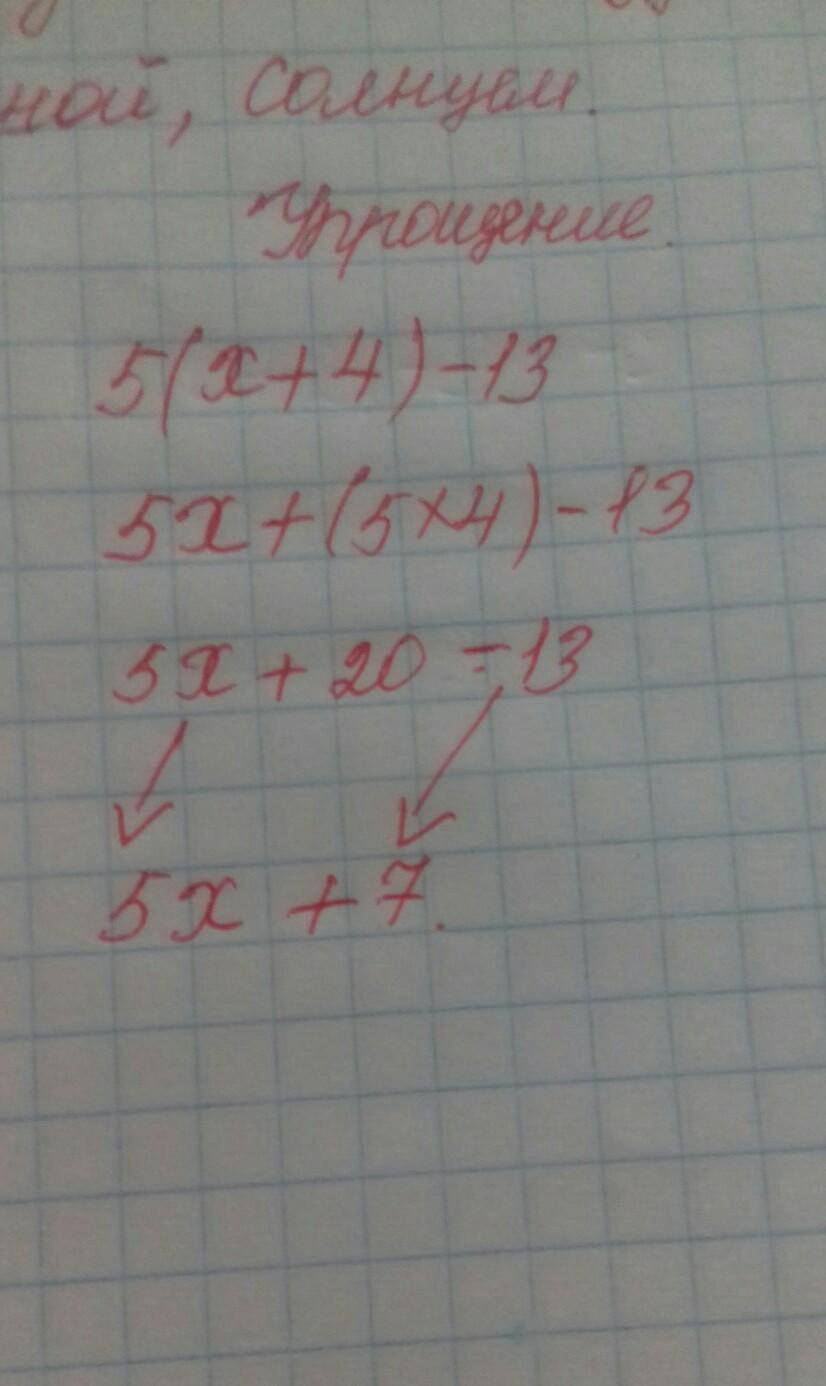 ной, солнцем.
Упрощение.
5(x+4)-13
5x+(5×4)-13
5x+20-13
5x+7.